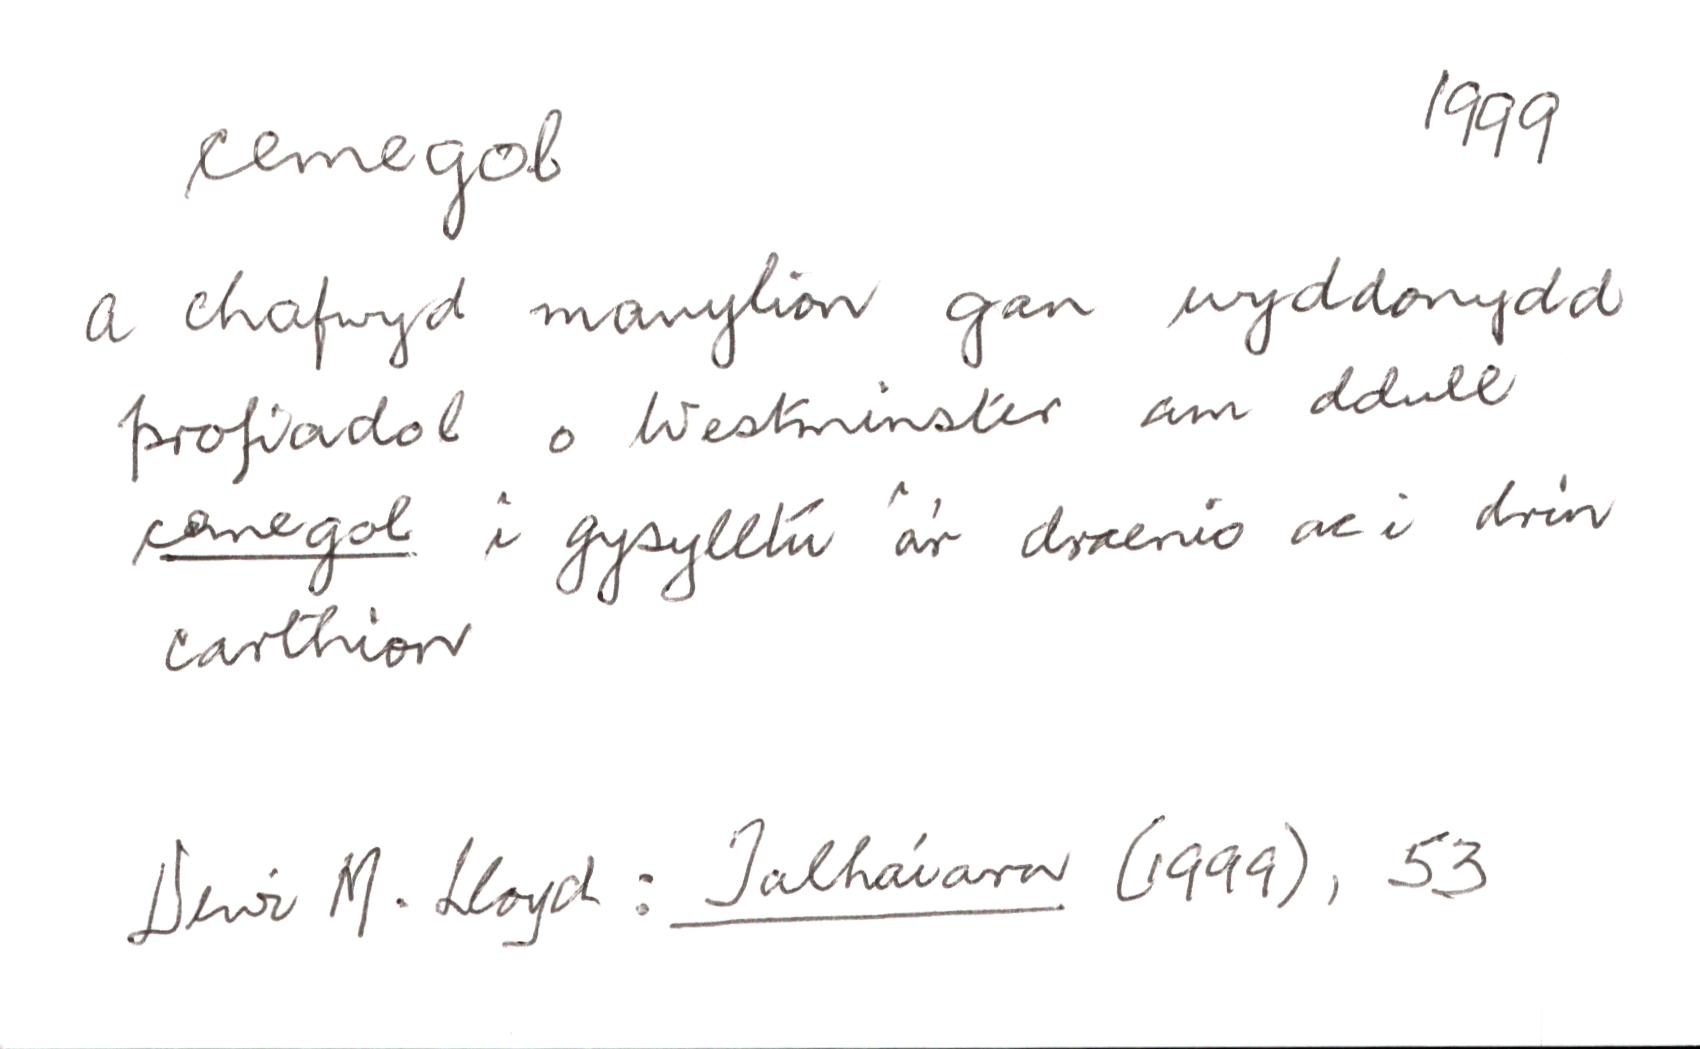 cemegol 1999
a chafwyd manylion gan wyddonydd
profiadol o Westminster am ddull
cemegol i gysylltu â'r draenio ac i drin
carthion
Dewi M. Lloyd: Talhaiarn (1999), 53